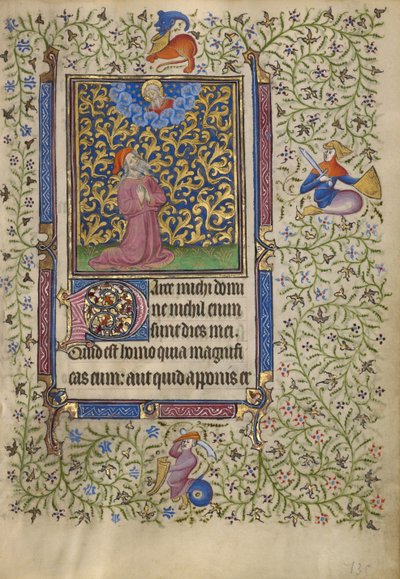 Parce michi domi
ne nichil enim
sunt dies mei.
Quid est homo quia magnifi
cas eum: aut quid apponis er
135